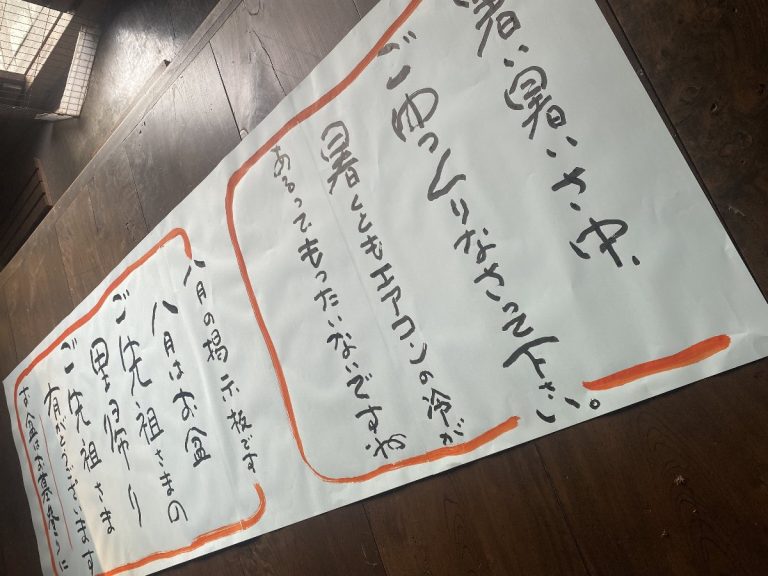 暑い暑いさ中、
ごゆっくりなさって下さい。
暑くともエアコンの冷が
あるってもったいないですね
八月の掲示板です
八月はお盆
ご先祖さまの
里帰り
ご先祖さま
有がとうございます
お盆はお墓参りへ!!